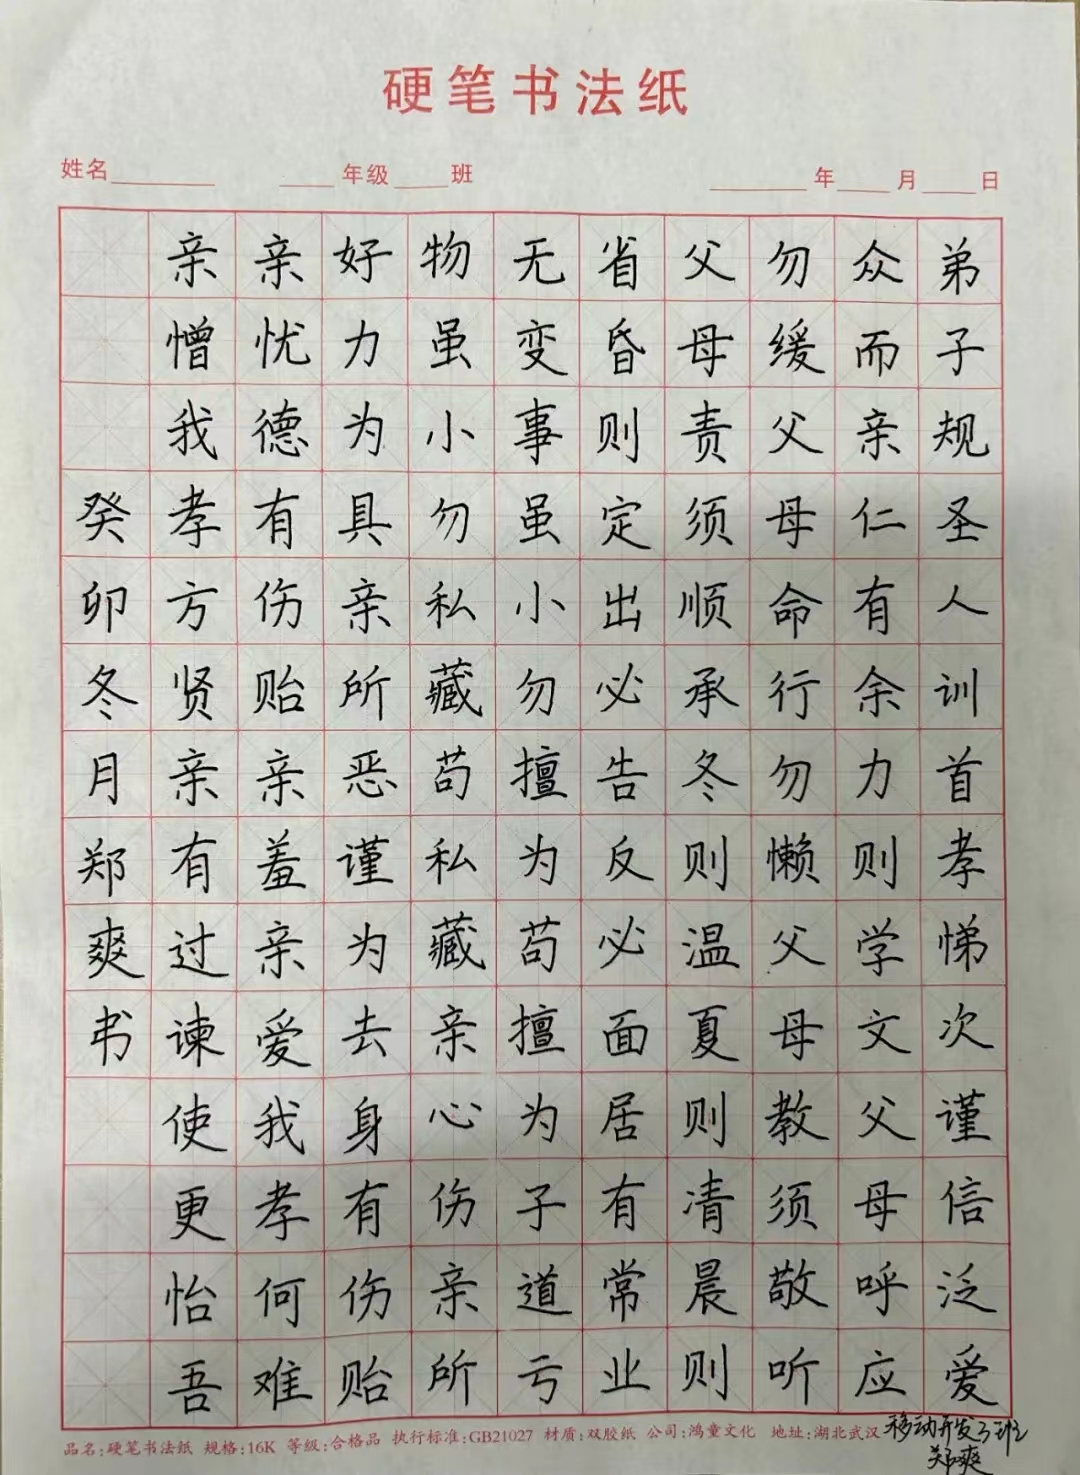 硬笔书法纸
姓名 年级 班 年 月 日
弟子规圣人训首孝悌次谨信泛爱
众而亲仁有余力则学文父母呼应
勿缓父母命行勿懒父母教须敬听
父母责须顺承冬则温夏则清晨则
省昏则定出必告反必面居有常业
无变事虽小勿擅为苟擅为子道亏
物虽小勿私藏苟私藏亲心伤亲所
好力为具亲所恶谨为去身有伤贻
亲忧德有伤贻亲羞亲爱我孝何难
亲憎我孝方贤亲有过谏使更怡吾
癸卯冬月郑爽书
品名:硬笔书法纸 规格:16K 等级:合格品 执行标准:GB21027 材质:双胶纸 公司:鸿童文化 地址:湖北武汉
移动开发3班
郑爽